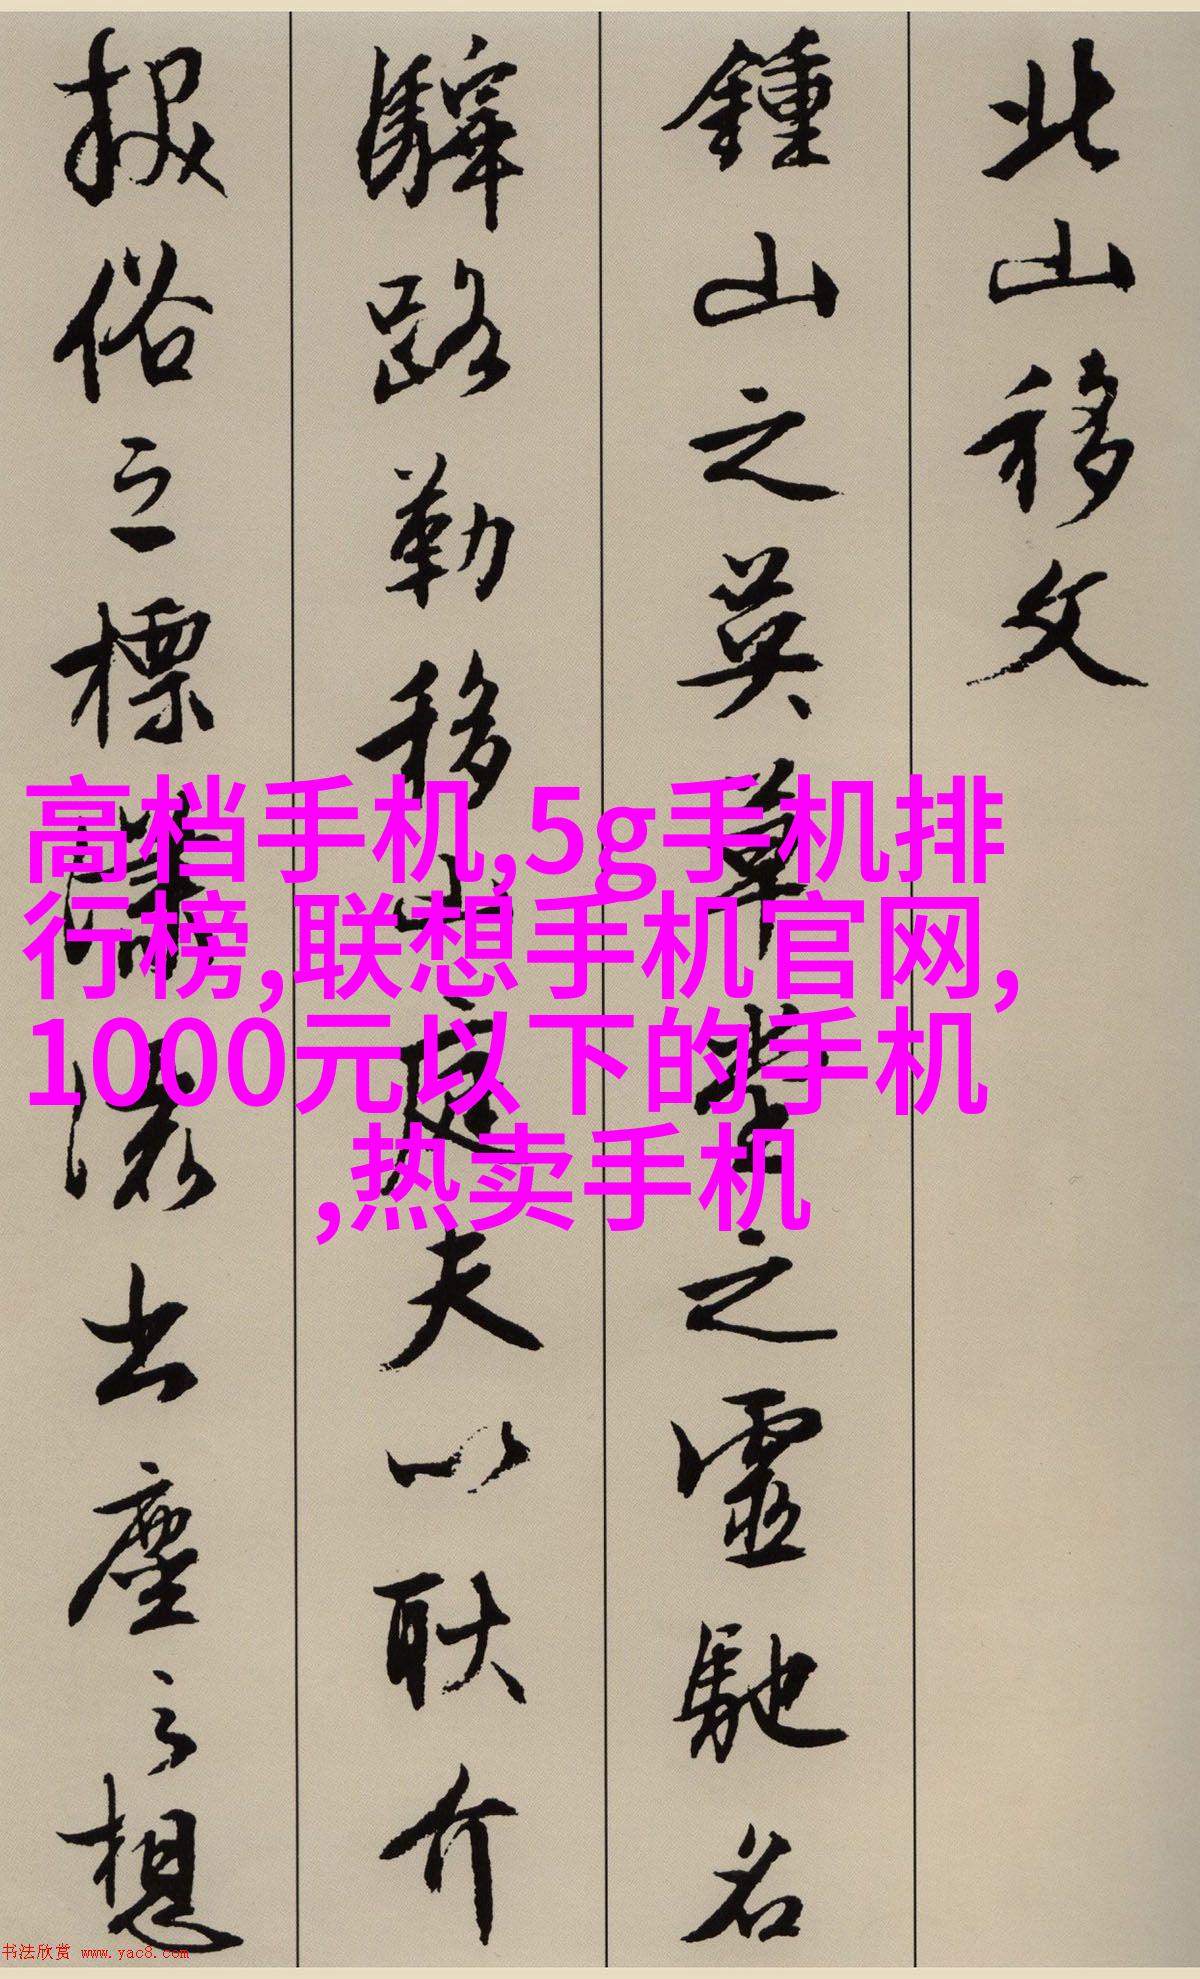 北山移文
鍾山之英草堂之靈馳名
驛路勒移山庭夫以耿介
拔俗之標瀟灑出塵之想
高档手机,5g手机排
行榜,联想手机官网,
1000元以下的手机
,热卖手机
书法欣赏 www.yac8.com